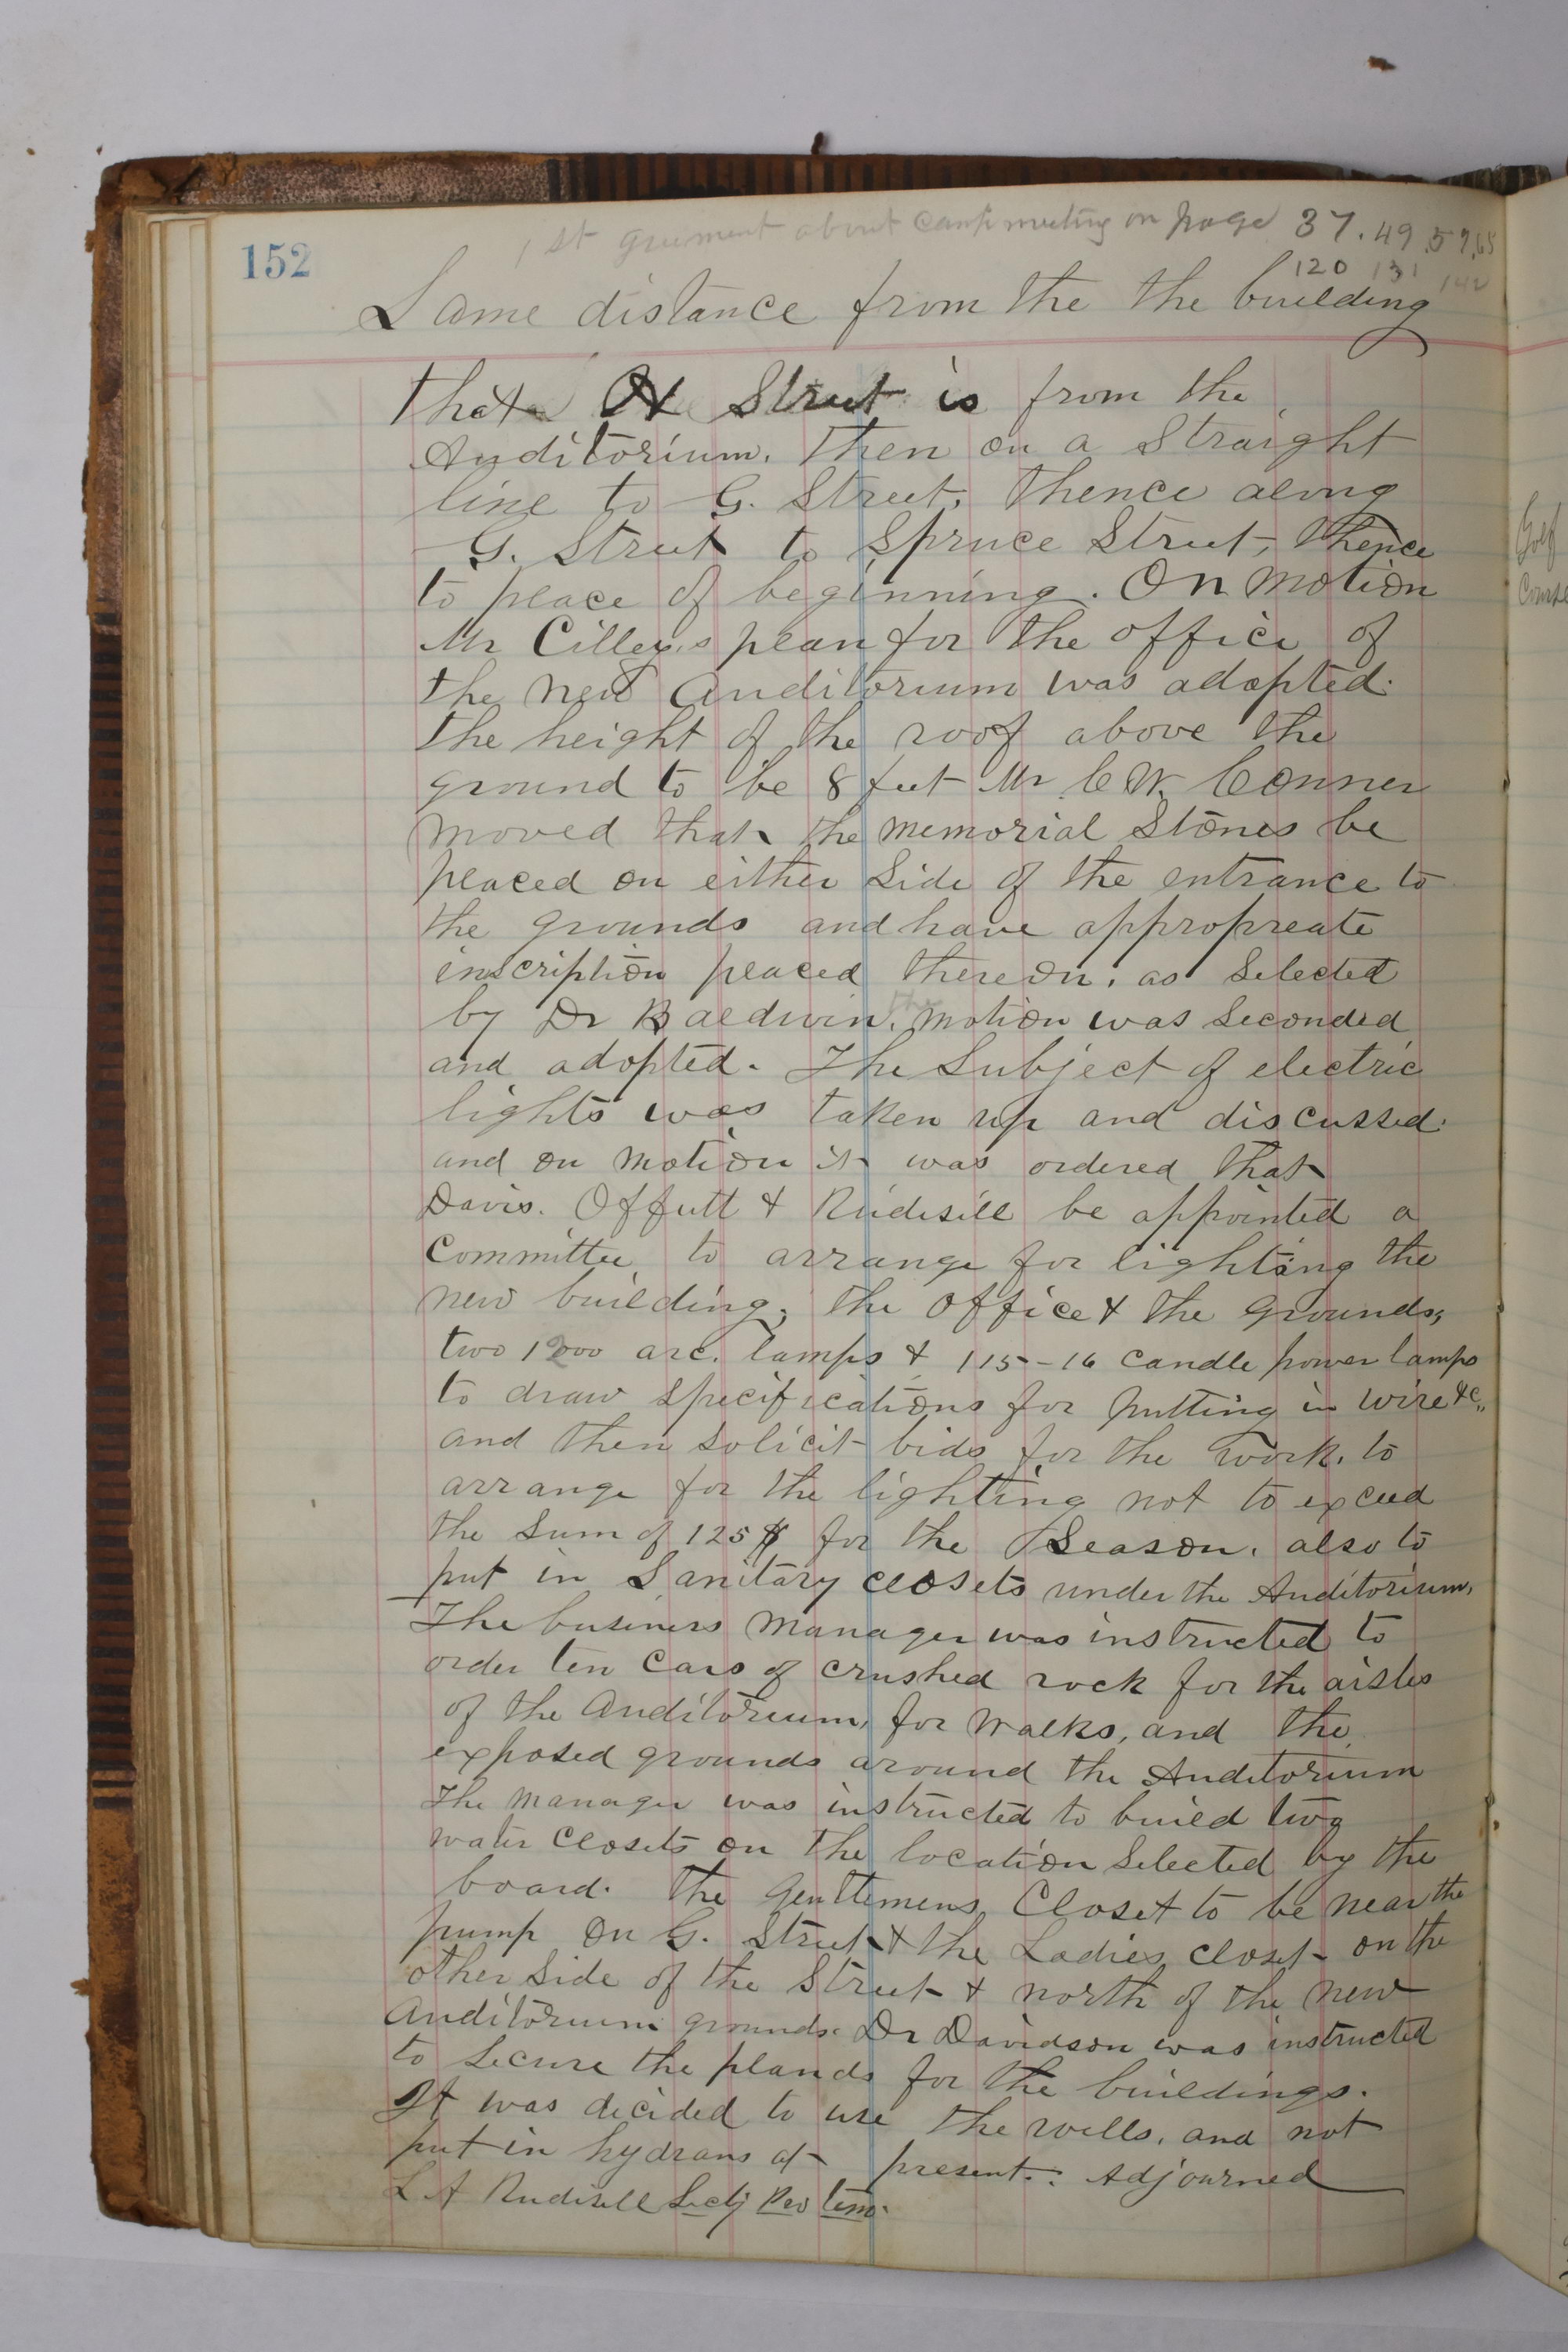 1st greement about camp meeting on page 37. 49. 57, 65
152
120 131 142
Same distance from the the building
that H Street is from the
Auditorium. Then on a straight
line to G. Street, thence along
G. Street to Spruce Street, thence
to place of beginning. On motion
Mr Cilleys plan for the office of
the new Auditorium was adopted.
the height of the roof above the
ground to be 8 feet Mr C W. Conner
moved that the memorial Stones be
placed on either side of the entrance to
the grounds and have appropreate
inscription placed thereon. as selected
by Dr Baldwin. the motion was seconded
and adopted. The Subject of electric
lights was taken up and discussed.
and on motion it was ordered that
Davis. Offutt & Rudisill be appointed a
Committee to arrange for lighting the
new building, the office & the grounds,
two 12000 arc. lamps & 115-16 candle power lamps
to draw specifications for putting in wire &c,,
and then solicit bids for the work. to
arrange for the lighting not to exceed
the sum of 125 $ for the Season. also to
put in Sanitary closets under the Auditorium,
The business manager was instructed to
order ten cars of crushed rock for the aisles
of the Auditorium, for walks, and the
exposed grounds around the Auditorium
The manager was instructed to build two
water closets on the location selected by the
board. The Gentlemens Closet to be near the
pump on G. Street & the Ladies closet on the
other side of the Street & north of the new
Auditorium grounds. Dr Davidson was instructed
to secure the plands for the buildings.
It was decided to use the wells, and not
put in hydrans at present. Adjourned
L A Rudisill Secty Pro tem.
Golf
Course